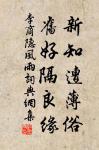 新知遭薄俗
舊好隔良緣
李商隱風雨詞典網集